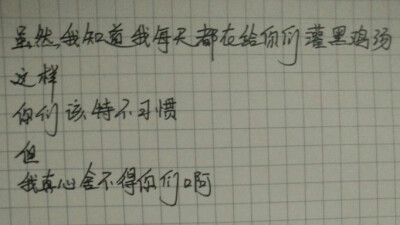 虽然我知道我每天都在给你们灌黑鸡汤
这样
你们该特不习惯
但
我真心舍不得你们啊